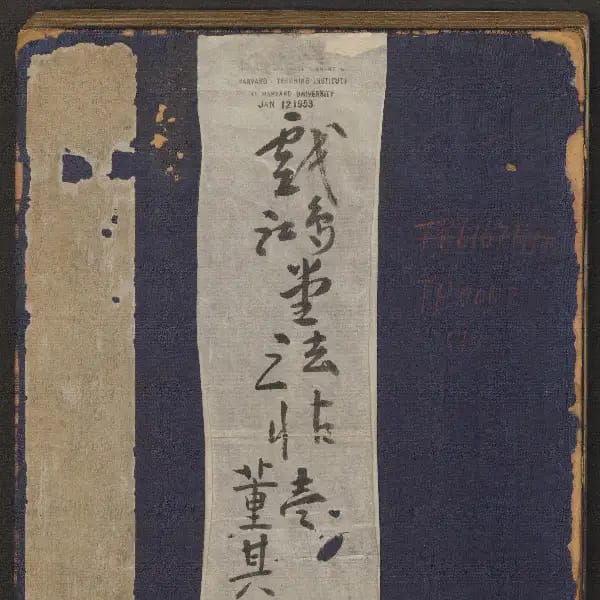 HARVARD - YENCHING INSTITUTE
AT HARVARD UNIVERSITY
JAN 12 1953
戲鴻堂法帖壹
董其